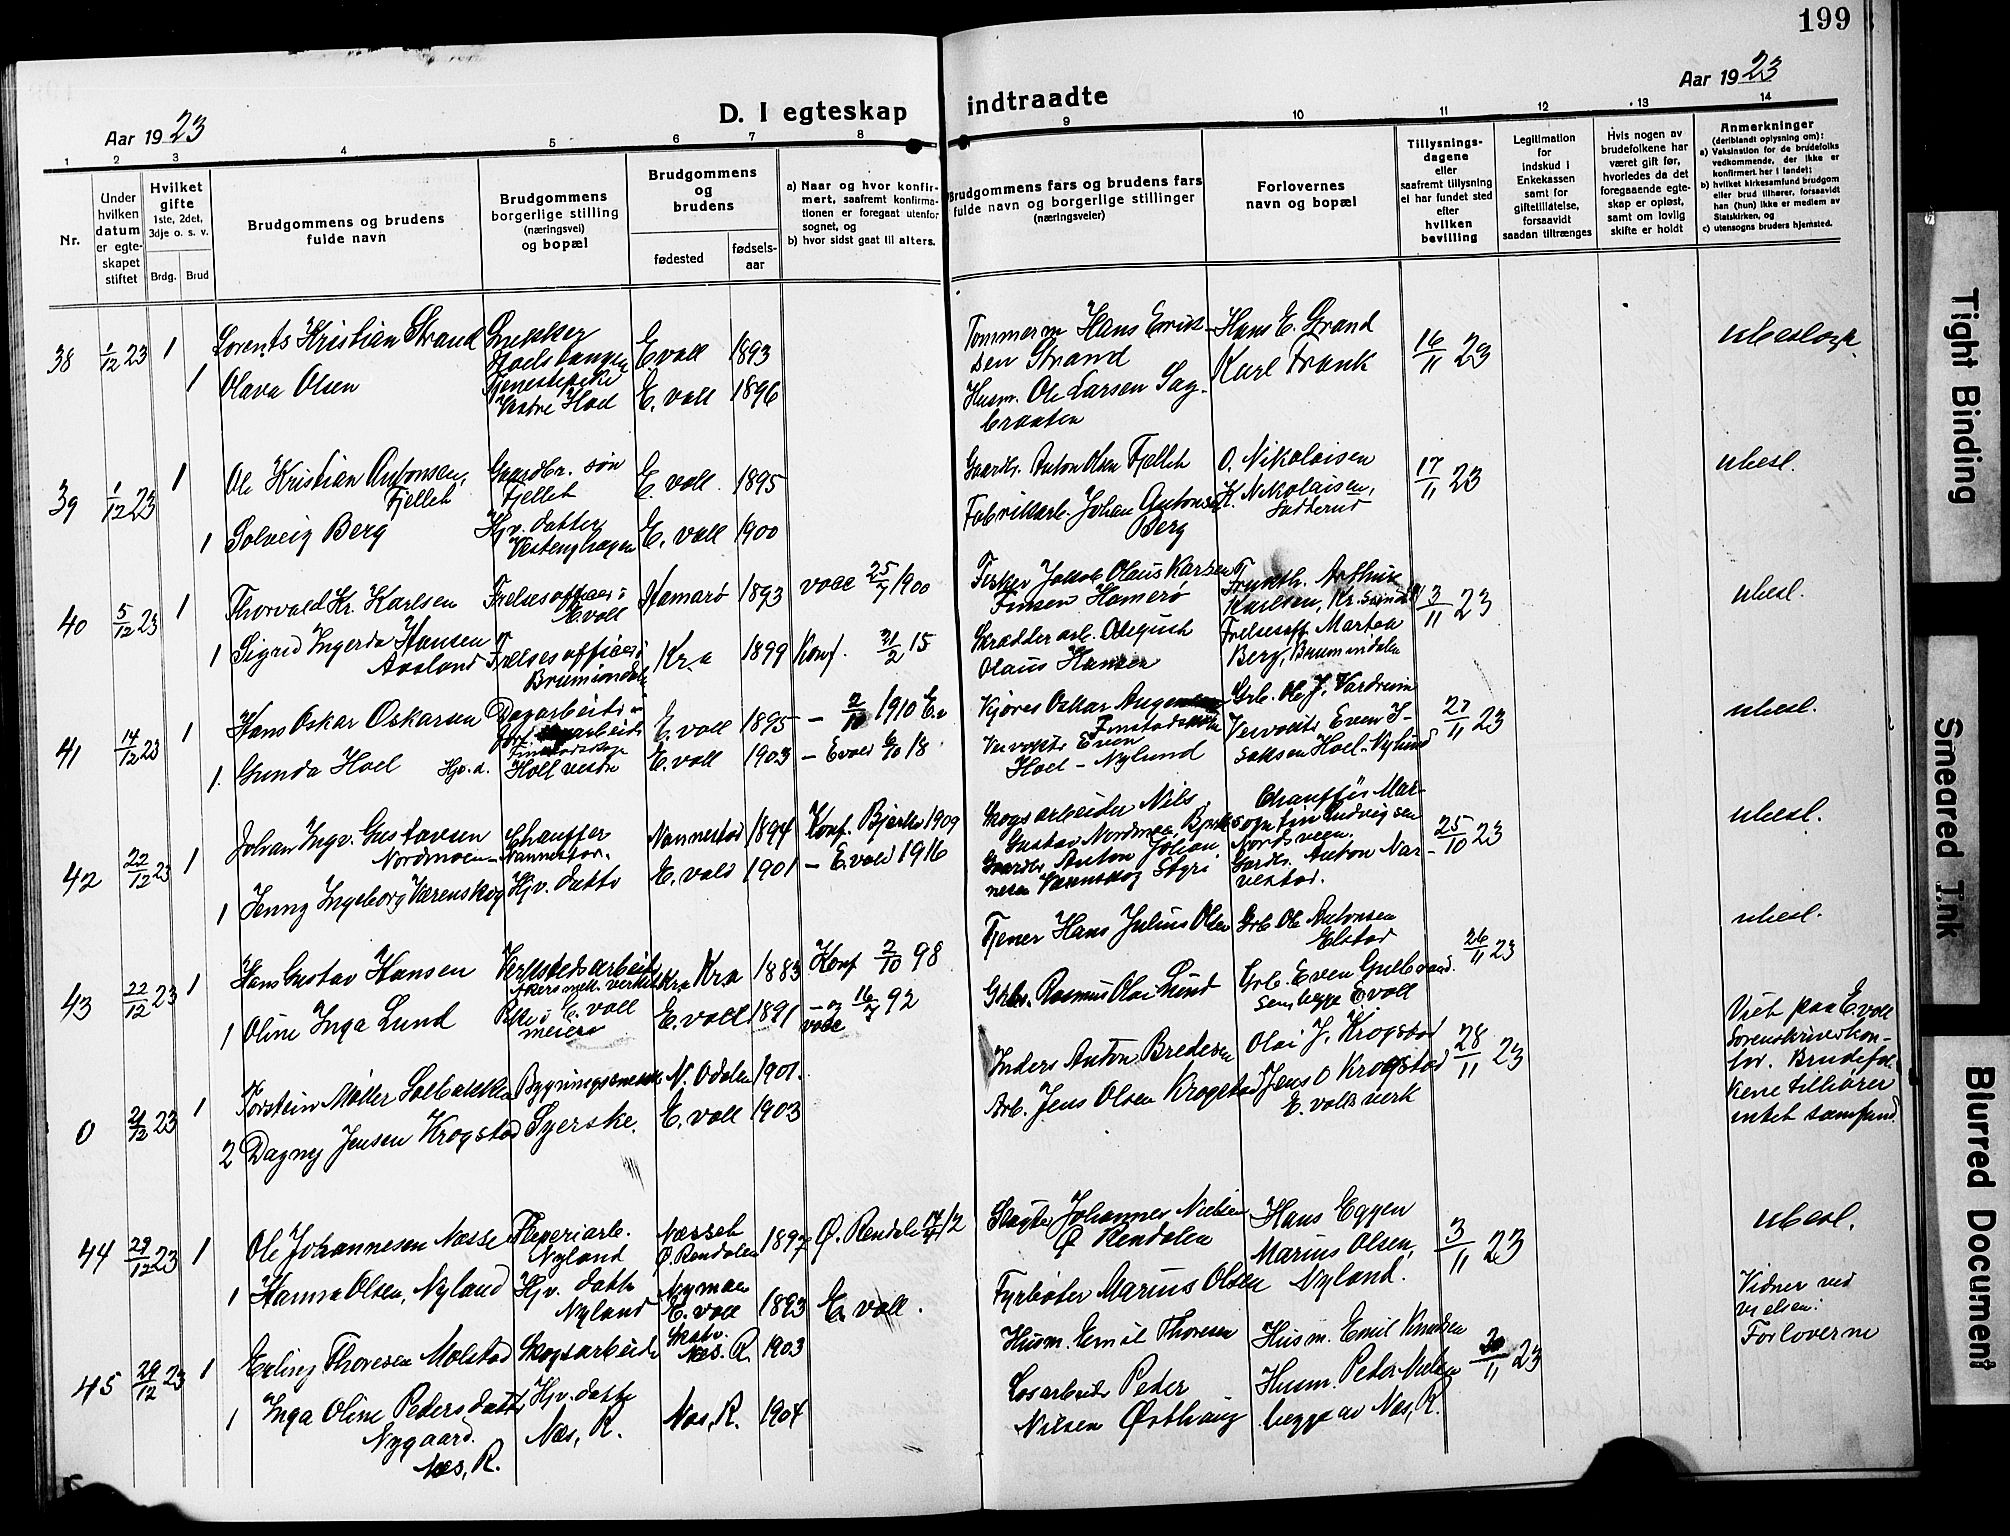 199
Aar 1923
D. I egteskap indtraadte
Aar 1923
1 2 3 4 5 6 7 8 9 10 11 12 13 14
Nr.
Under hvilken datum er egteskapet stiftet
Hvilket gifte 1ste, 2det, 3dje o. s. v.
Brdg. Brud
Brudgommens og brudens fulde navn
Brudgommens borgerlige stilling (næringsvei) og bopæl
Brudgommens og brudens
fødested
fødselsaar
a) Naar og hvor konfirmert, saafremt konfirmationen er foregaat utenfor sognet, og
b) hvor sidst gaat til alters.
Brudgommens fars og brudens fars fulde navn og borgerlige stillinger (næringsveier)
Forlovernes navn og bopæl
Tillysningsdagene eller saafremt tillysning ei har fundet sted efter hvilken bevilling
Legitimation for indskud i Enkekassen samt for giftetillatelse, forsaavidt saadan tiltrænges
Hvis nogen av brudefolkene har været gift før, hvorledes da det foregaaende egteskap er opløst, samt om lovlig skifte er holdt
Anmerkninger (deriblandt oplysning om):
a) Vaksination for de brudefolks vedkommende, der ikke er konfirmert her i landet;
b) hvilket kirkesamfund brudgom eller brud tilhører, forsaavidt han (hun) ikke er medlem av Statskirken, og
c) utensogns bruders hjemsted.
38 1/12 23 1 Lorents Kristian Strand Snekker E voll 1893 Tommerm Hans Eriksen Strand Hans E. Strand 16/11 23
1 Olava Olsen Tjenestepike Vestre Hoel E. voll 1896 Husm. Ole Larsen Sagbraaten Karl Frank
39 1/12 23 1 Ole Kristian Antonsen, Fjellet Gaardbr. søn Fjellet E. voll 1895 Gaardb. Anton Olsen Fjellet O. Nikolaisen 17/11 23 ubesl.
1 Solveig Berg Hjv. datter Vestenghagen E. voll 1900 Fabrikarb. Johan Antonsen Berg K. Nikolaisen,
40 5/12 23 1 Thorvald Kr. Karlsen Frelsesofficer i E voll Hamarø 1893 voll 25/7 1900 Fisker Jakob Olaus Karlsen Finsen Hamerø Arthur Karlsen, Kr. 3/11 23 ubesl.
1 Sigrid Ingerda Hansen Aasland Frelsesofficer i Brumunddal Kra 1899 Konf. 21/2 15 Skrædderarb. August Olaus Hansen Frelsesoff. Martea Berg, Brumundalen
41 14/12 23 1 Hans Oskar Oskarsen Dagarbeider E. voll 1895 1910 E. Kjører Oskar 27/11 23 ubesl.
1 Gunda Hoel Hjv. d. Hoel vestre E. voll 1903 – E voll 6/10 18 Even Hoel – Nylund Even Isaksen Hoel-Nylund
42 22/12 23 1 Johan Ingv. Gustavsen Nordmoen Chauffør Nannestad. Nannestad 1894 Konf. Bjerke 1909 Skogsarbeider Nils Gustav Nordmoen, Bjerke Chauffør Ludvigsen 25/10 23 ubesl.
1 Jenny Ingeborg Værenskog Hjv. datter E. vold 1901 – E. vold 1916 Gaardbr Anton Johan Værenskog Styri Gardbr. Anton Narvestad.
43 22/12 23 1 Hans Gustav Hansen Verkstedsarbeider Akersmek. verksted Kra 1883 Konf 2/10 98 Tjener Hans Julius Olsen Arb. Ole Antonsen Elstad 26/11 23 ubesl.
1 Oline Inga Lund Pike i E. voll meieri E. voll 1891 voll 16/7 92 Rasmus Olai Lund Even begge E voll
0 21/12 23 1 Torstein Møller Solbakken Bygningssnekker N. Odalen 1901. Anton Bredesen Olai J. Krogstad 28/11 23 Viet paa E. voll Sorenskriverkontor. Brudefolkene tilhører intet samfund.
2 Dagny Jensen Krogstad Syerske. E. voll 1903 Arb. Jens Olsen Krogstad Jens O Krogstad E. volls verk
44 29/12 23 1 Ole Johannesen Næsset Fløteriarb. Nyland Næsset Ø. Rendalen 1897 Ø. Rendalen 12 Johannes Nielsen Ø Rendalen Hans Eggen 3/11 23 ubesl.
1 Hanna Olsen, Nyland Hjv. datter Nyland Nymoen E. voll 1893 E. voll. Fyrbøter Marius Olsen Marius Olsen, Nyland.
45 29/12 23 1 Erling Thoresen Molstad Skogsarbeider Næs. R. 1903 Husm. Emil Thoresen Husm. Emil Knudsen 30/11 23 Vidner ved vielsen: Forloverne
1 Inga Oline Pedersdatter Nygaard. Næs, R. Hjv. datter Næs, R. Næs, R. 1904 Løsarbeider Peder Nilsen Østhaug Husm. Peder Nilsen begge av Næs, R.
Tight Binding
Smeared Ink
Blurred Document